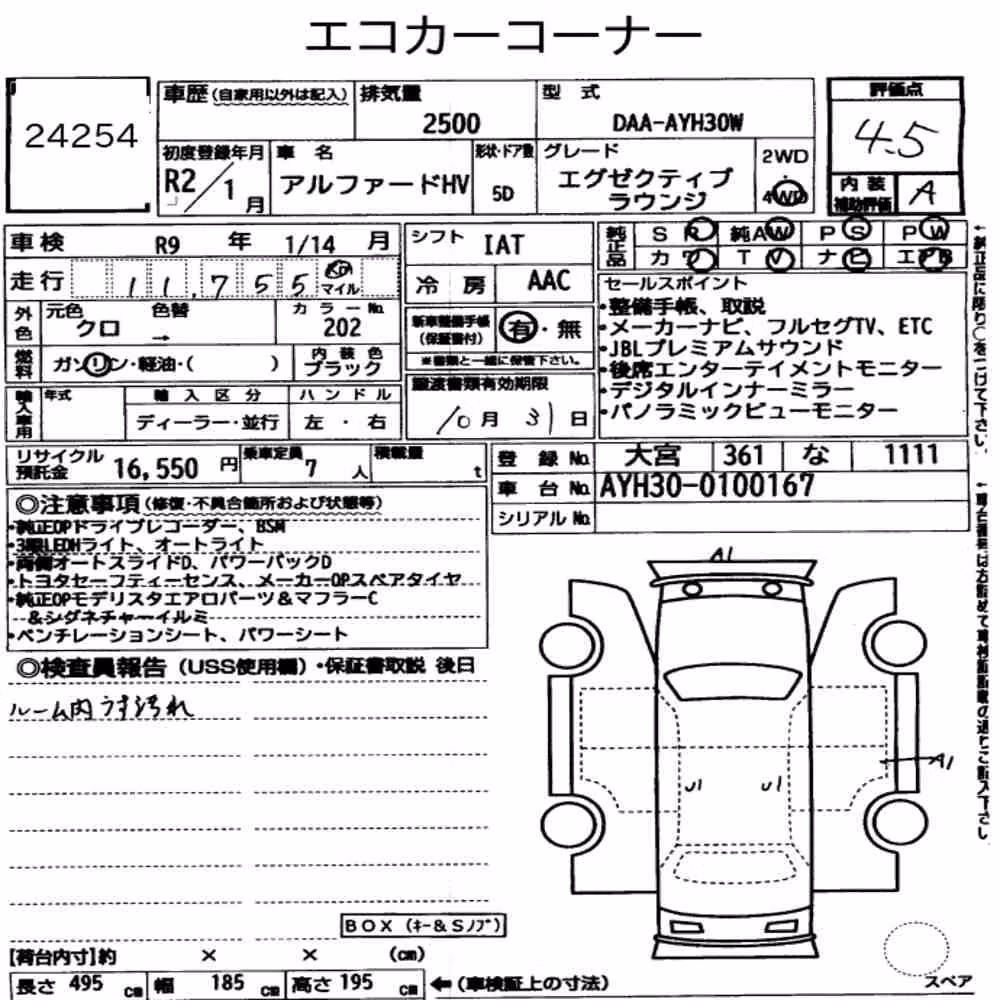 エコカーコーナー
24254
車歴(自家用以外は記入) 排気量 2500 型式 DAA-AYH30W
評価点 4.5
内装補助評価 A
初度登録年月 R2/1月 車名 アルファードHV 形状・ドア数 5D グレード エグゼクティブラウンジ 2WD・4WD
車検 R9年 1/14月 シフト IAT
純正品 SR 純AW PS PW
カワ TV ナビ エアB
走行 11,755 Km マイル
冷房 AAC
外色 元色 クロ 色替 → カラーNo. 202
新車整備手帳(保証書付) 有・無
※書類と一緒に保管下さい。
燃料 ガソリン・軽油・( ) 内装色 ブラック
譲渡書類有効期限
10月31日
輸入車用 年式 輸入区分 ディーラー・並行 ハンドル 左・右
セールスポイント
・整備手帳、取説
・メーカーナビ、フルセグTV、ETC
・JBLプレミアムサウンド
・後席エンターテイメントモニター
・デジタルインナーミラー
・パノラミックビューモニター
リサイクル預託金 16,550円 乗車定員 7人 積載量 t
登録No. 大宮 361 な 1111
車台No. AYH30-0100167
シリアルNo.
◎注意事項(修復・不具合箇所および状態等)
・純正OPドライブレコーダー、BSM
・3眼LEDHライト、オートライト
・両側オートスライドD、パワーバックD
・トヨタセーフティーセンス、メーカーOPスペアタイヤ
・純正OPモデリスタエアロパーツ&マフラーC
&シグネチャーイルミ
・ベンチレーションシート、パワーシート
◎検査員報告(USS使用欄)・保証書取説 後日
ルーム内うす汚れ
A1
A1
U1
U1
BOX(キー&Sノブ)
【荷台内寸】約 × × (cm)
長さ 495cm 幅 185cm 高さ 195cm ←(車検証上の寸法)
スペア